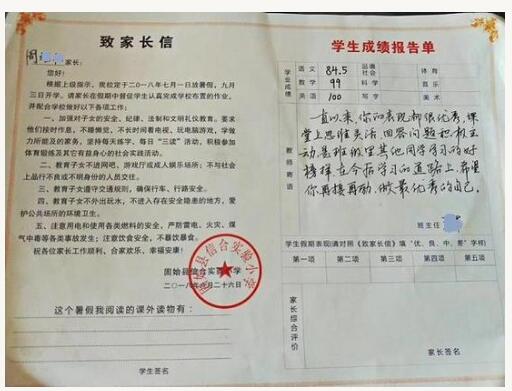 致家长信
周
家长：
您好！
根据上级指示，我校定于二〇一八年七月一日放暑假，九月
三日开学。请家长在假期中督促学生认真完成学校布置的作业，
并配合学校做好以下各项工作：
一、加强对子女的安全、纪律、法制和文明礼仪教育。要求
他们按时作息，不睡懒觉，不长时间看电视、玩电脑游戏，学做
力所能及的家务，坚持每天练字、每日“三读”活动，积极参加
体育锻炼及其它有益身心的社会实践活动。
二、教育子女不进网吧、游戏厅或成人娱乐场所；不与社会
上品行不良或不明身份的人员交往。
三、教育子女遵守交通规则，确保行车、行路安全。
四、教育子女不外出玩水，不进入存在安全隐患的地方，爱
护公共场所的环境卫生。
五、注意用电和使用各类燃料的安全，严防雷电、火灾、煤
气中毒等各类事故发生；注意饮食安全，不暴饮暴食。
祝各位家长工作顺利、合家欢乐、幸福安康！
固始县信合实验小学
二〇一八年六月二十六日
固始县信合实验小学
这个暑假我阅读的课外读物有：
学生签名
学生成绩报告单
学业成绩
语文 84.5 品德社会 体育
数学 99 科学 音乐
英语 100 写字 美术
教师寄语
一直以来，你的表现都很优秀，课
堂上思维灵活，回答问题积极主
动，是班级里其他同学学习的好
榜样，在今后学习的道路上，希望
你再接再励，做最优秀的自己。
班主任
学生假期表现(请对照《致家长信》填“优、良、中、差”字样)
第一项 第二项 第三项 第四项 第五项
家长综合评价
家长签名